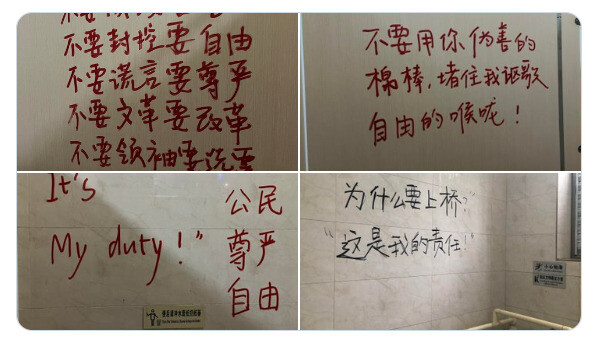 不要封控要自由
不要谎言要尊严
不要文革要改革
不要领袖要选票
不要用你伪善的
棉棒，堵住我讴歌
自由的喉咙！
It's
My duty!"
公民
尊严
自由
为什么要上桥？"
"这是我的责任！"
小心地滑